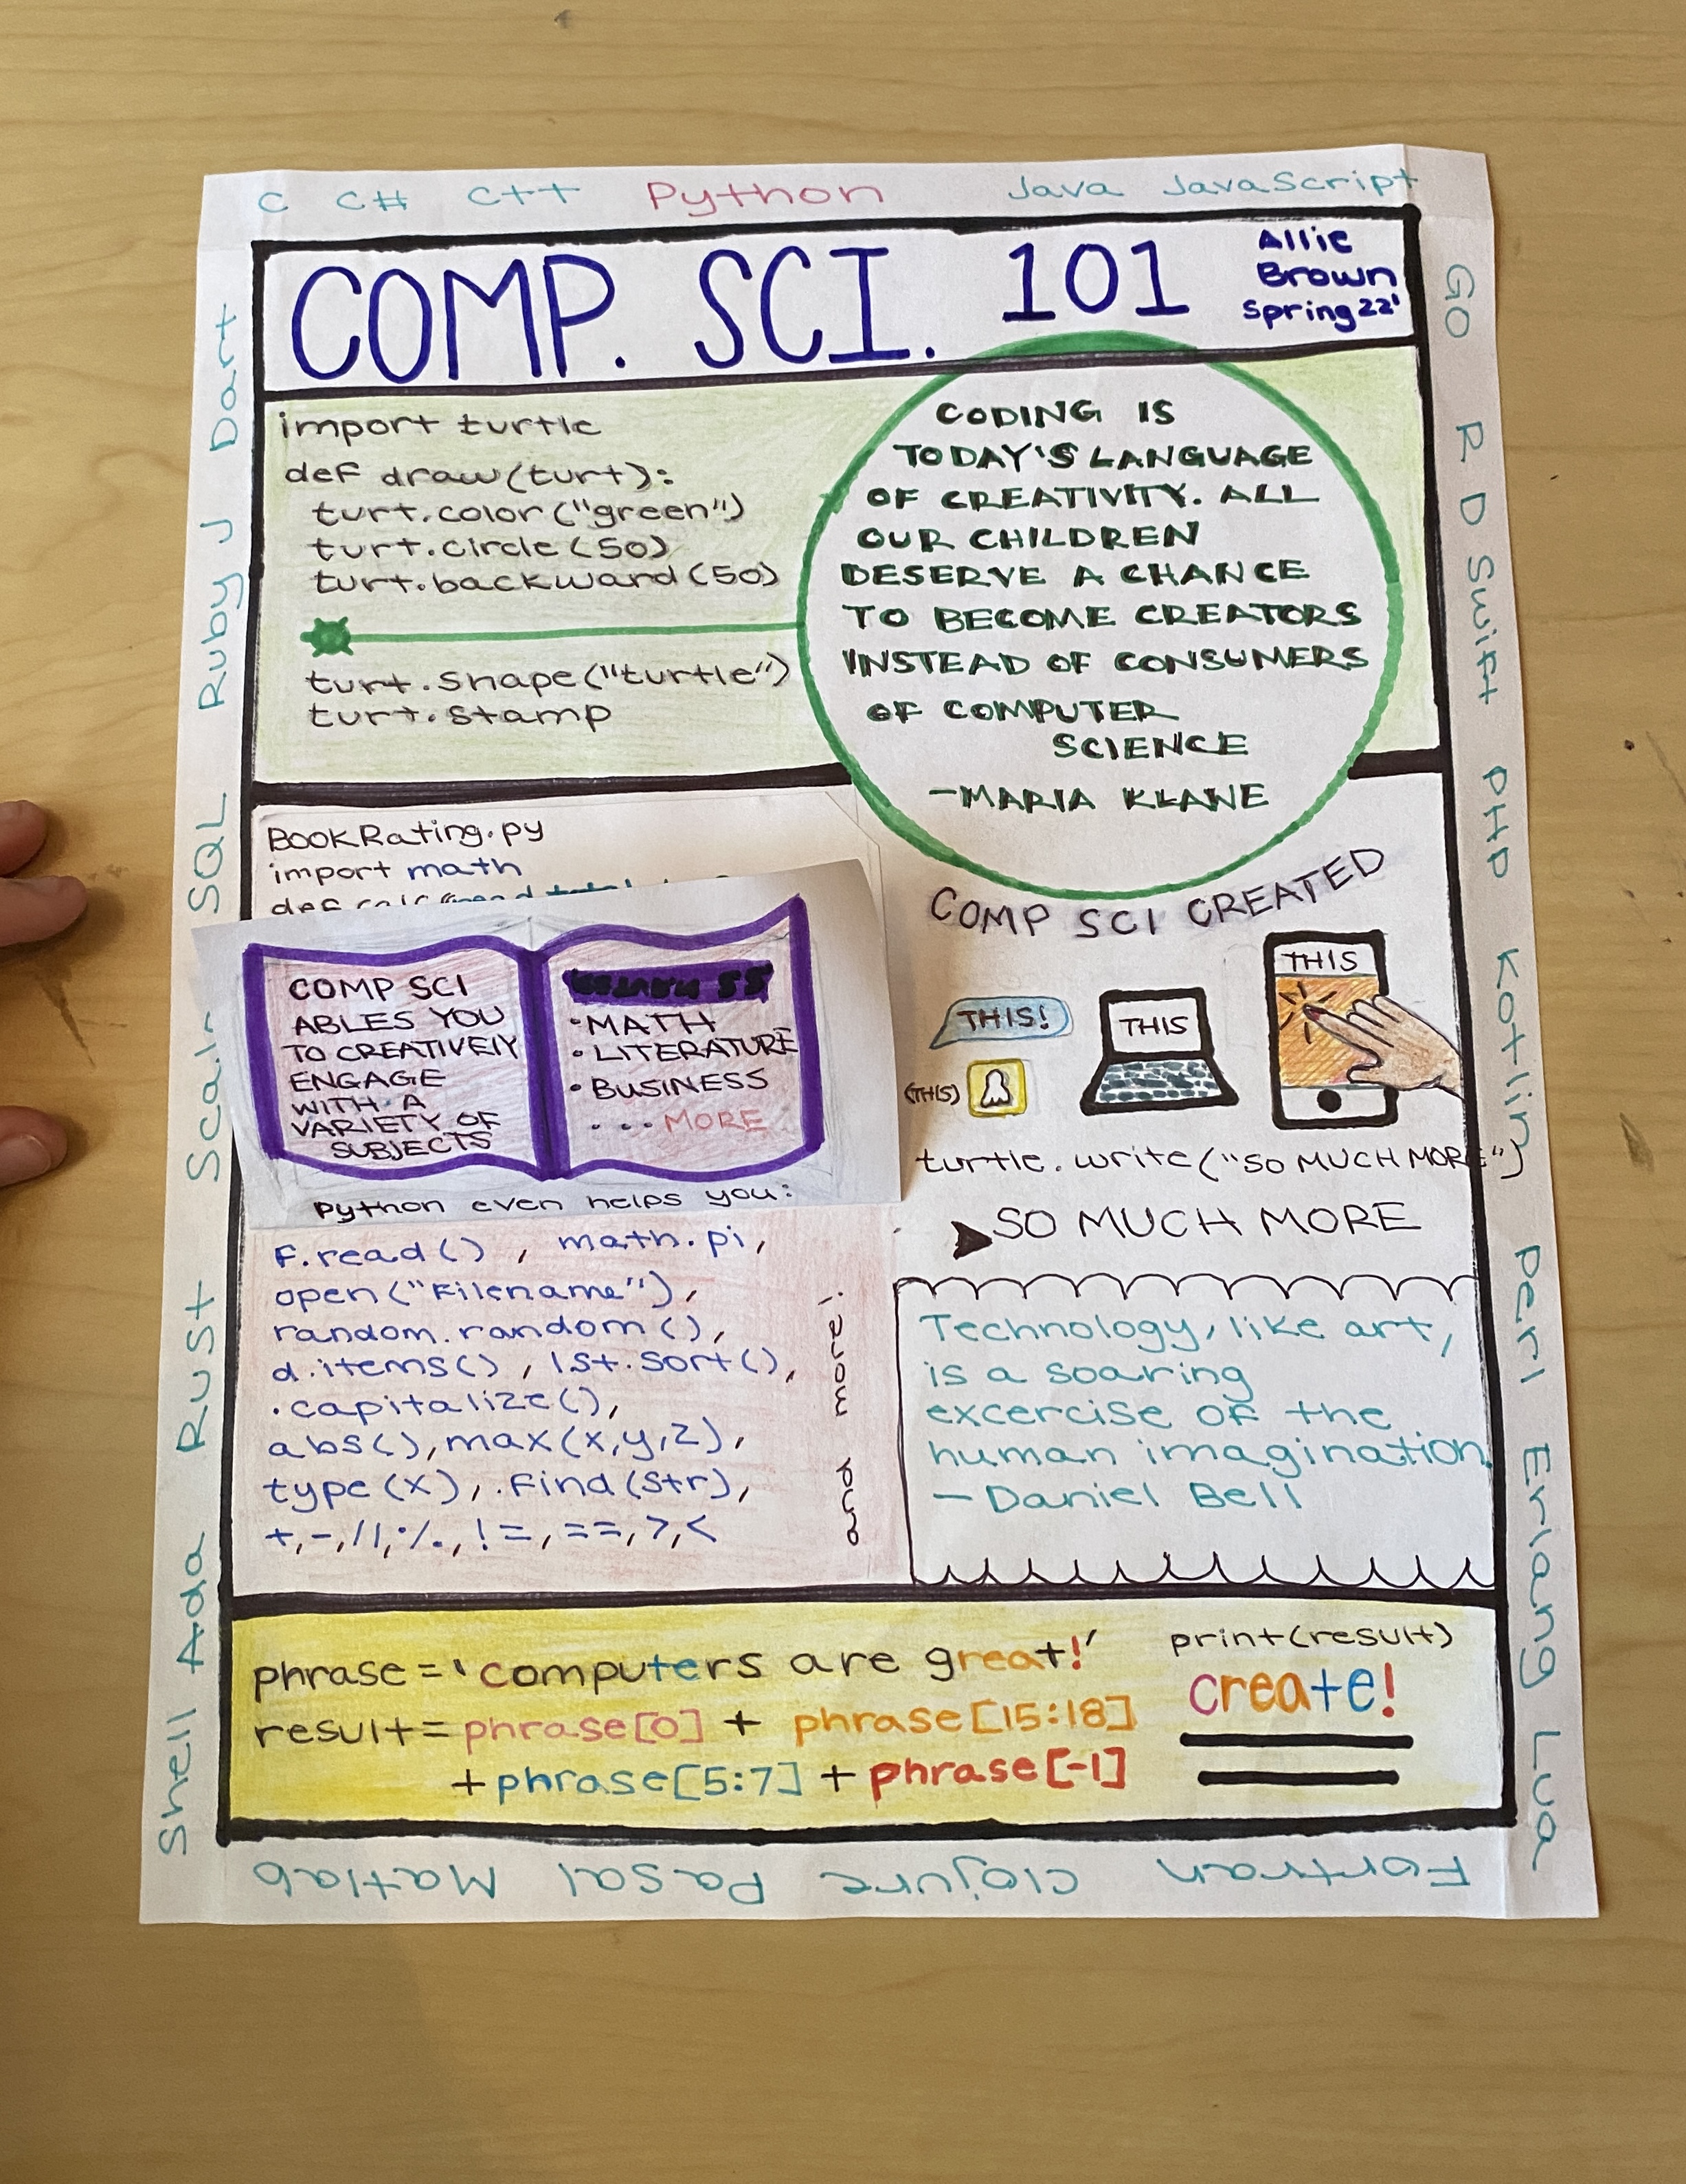 C C# C++ Python Java JavaScript
COMP. SCI. 101
Allie
Brown
Spring 22'
import turtle
def draw(turt):
turt.color("green")
turt.circle(50)
turt.backward(50)
turt.shape("turtle")
turt.stamp
CODING IS
TODAY'S LANGUAGE
OF CREATIVITY. ALL
OUR CHILDREN
DESERVE A CHANCE
TO BECOME CREATORS
INSTEAD OF CONSUMERS
OF COMPUTER
SCIENCE
-MARIA KLANE
BookRating.py
import math
def calc
COMP SCI
ABLES YOU
TO CREATIVELY
ENGAGE
WITH A
VARIETY OF
SUBJECTS
•MATH
•LITERATURE
•BUSINESS
...MORE
Python even helps you:
f.read() , math.pi,
open("Filename"),
random.random(),
d.items() , lst.sort(),
.capitalize(),
abs(), max(x,y,z),
type(x), .find(str),
+,-,//,%, !=, ==, >,<
and more!
COMP SCI CREATED
THIS!
(THIS)
THIS
THIS
turtle.write("SO MUCH MORE")
SO MUCH MORE
Technology, like art,
is a soaring
excercise of the
human imagination.
- Daniel Bell
phrase = 'computers are great!'
result= phrase[0] + phrase[15:18]
+ phrase[5:7] + phrase[-1]
print(result)
create!
GO R D Swift PHP Kotlin Perl Erlang Lua
Fortran Clojure Pasal Matlab
Shell Ada Rust Scala SQL Ruby J Dart